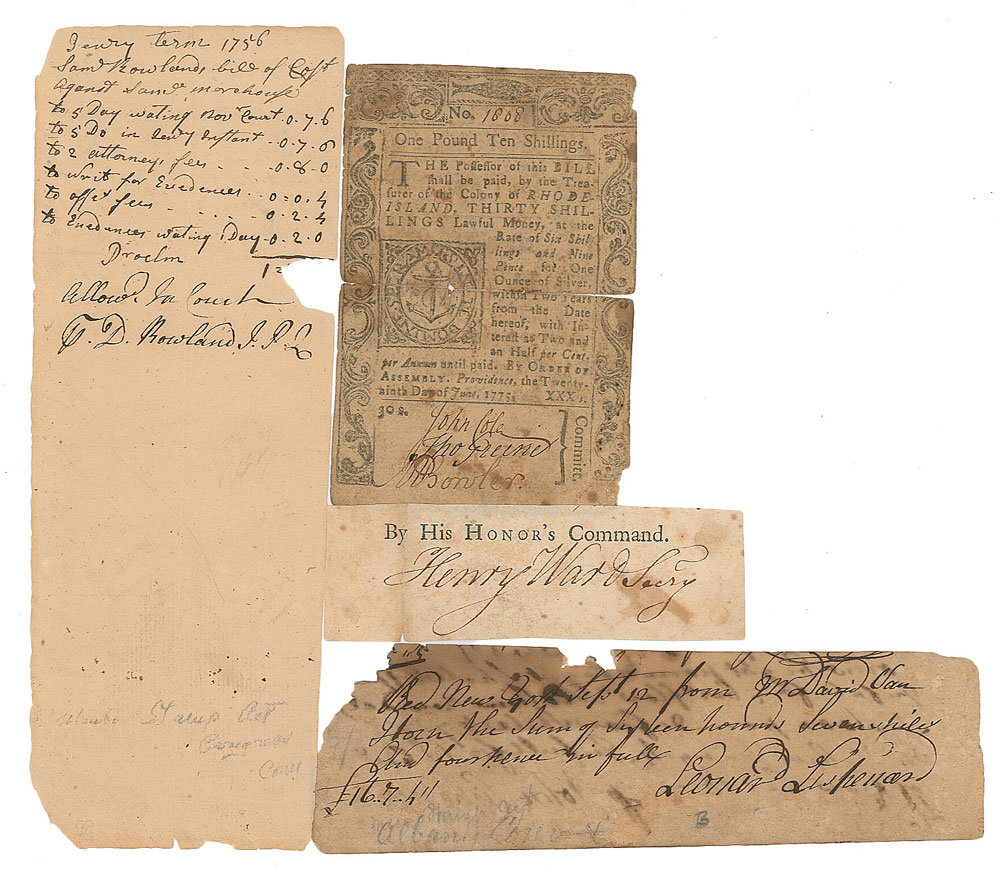 Jenry term 1756
Saml Rowlands bill of Cost
Against Saml morehouse
to 5 Day wating Novr Court 0.7.6
to 5 Do in Jenry Instant .. 0.7.6
to 2 attorneys fees . . . 0.8.0
to writ for Evedences . . 0=0.4
to offr fees . . . . . 0.2.4
to Evedences wating 1 Day 0.2.0
Allowd In Court
T. D. Rowland J. P. Q
Stamp Act
Congress
Conn
No. 1808
One Pound Ten Shillings.
THE Possessor of this BILL
shall be paid, by the Trea-
surer of the Colony of RHODE-
ISLAND, THIRTY SHIL-
LINGS Lawful Money, at the
Rate of Six Shil-
lings and Nine
Pence for One
Ounce of Silver,
within Two Years
from the Date
hereof, with In-
terest at Two and
an Half per Cent.
per Annum until paid. By ORDER OF
ASSEMBLY. Providence, the Twenty-
ninth Day of June, 1775. XXX s.
30s.
John Cole
Tho Greene
Bowler.
Committ.
By His HONOR's Command.
Henry Ward Secry
Recd New York Sept 12 from Mr David Van
Horn the Sum of Sixteen pounds Seven shils
And fourpence in full
£16..7..4
Leonard Lispenard
Stamp Act
Albany
B